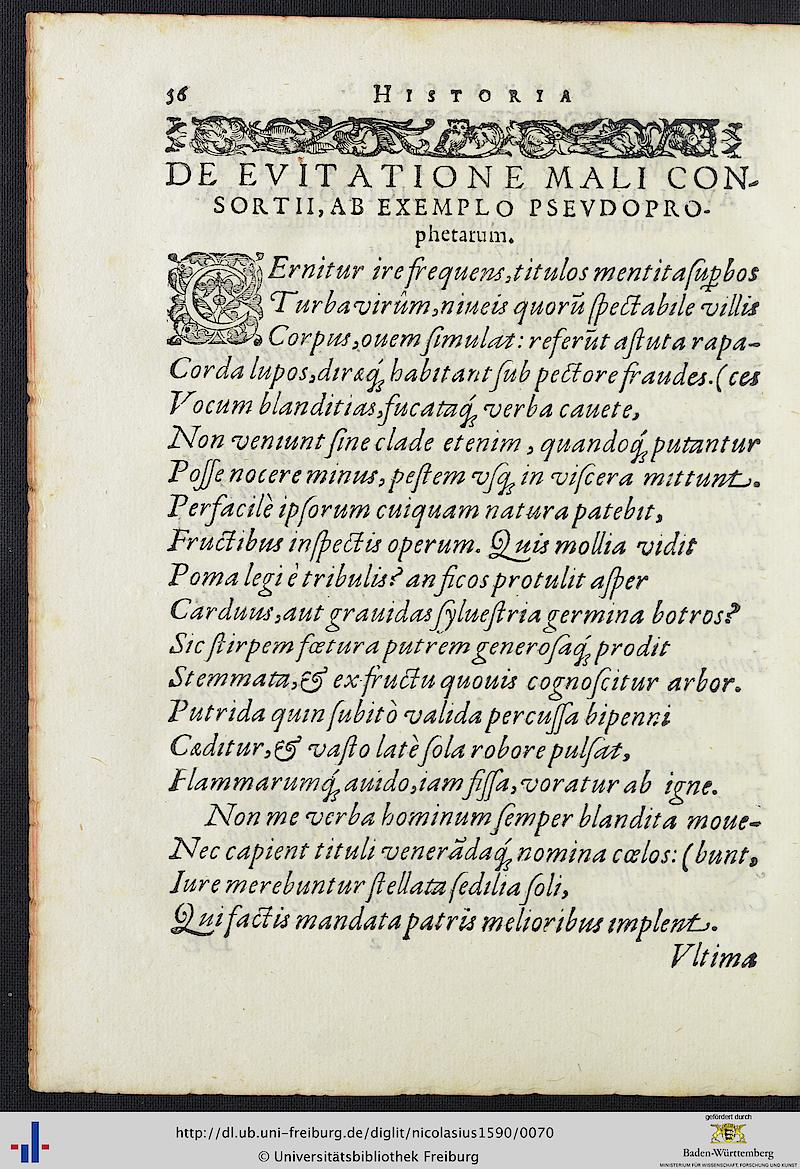 36 HISTORIA
DE EVITATIONE MALI CON-
SORTII, AB EXEMPLO PSEVDOPRO-
phetarum.
CErnitur ire frequens, titulos mentita suꝑbos
Turba virûm, niueis quorũ spectabile villis
Corpus, ouem simulat: referũt astuta rapa-
Corda lupos, diræq́ꝫ habitant sub pectore fraudes. (ces
Vocum blanditias, fucataq́ꝫ verba cauete,
Non veniunt sine clade etenim, quandoq́ꝫ putantur
Posse nocere minus, pestem vsq́ꝫ in viscera mittunt.
Perfacilè ipsorum cuiquam natura patebit,
Fructibus inspectis operum. Quis mollia vidit
Poma legi è tribulis? an ficos protulit asper
Carduus, aut grauidas syluestria germina botros?
Sic stirpem fœtura putrem generosaq́ꝫ prodit
Stemmata, & ex fructu quouis cognoscitur arbor.
Putrida quin subitò valida percussa bipenni
Cæditur, & vasto latè sola robore pulsat,
Flammarumq́ꝫ auido, iam fissa, voratur ab igne.
Non me verba hominum semper blandita moue-
Nec capient tituli venerãdaq́ꝫ nomina cœlos: (bunt,
Iure merebuntur stellata sedilia soli,
Qui factis mandata patris melioribus implent.
Vltima
http://dl.ub.uni-freiburg.de/diglit/nicolasius1590/0070
© Universitätsbibliothek Freiburg
gefördert durch
Baden-Württemberg
MINISTERIUM FÜR WISSENSCHAFT, FORSCHUNG UND KUNST